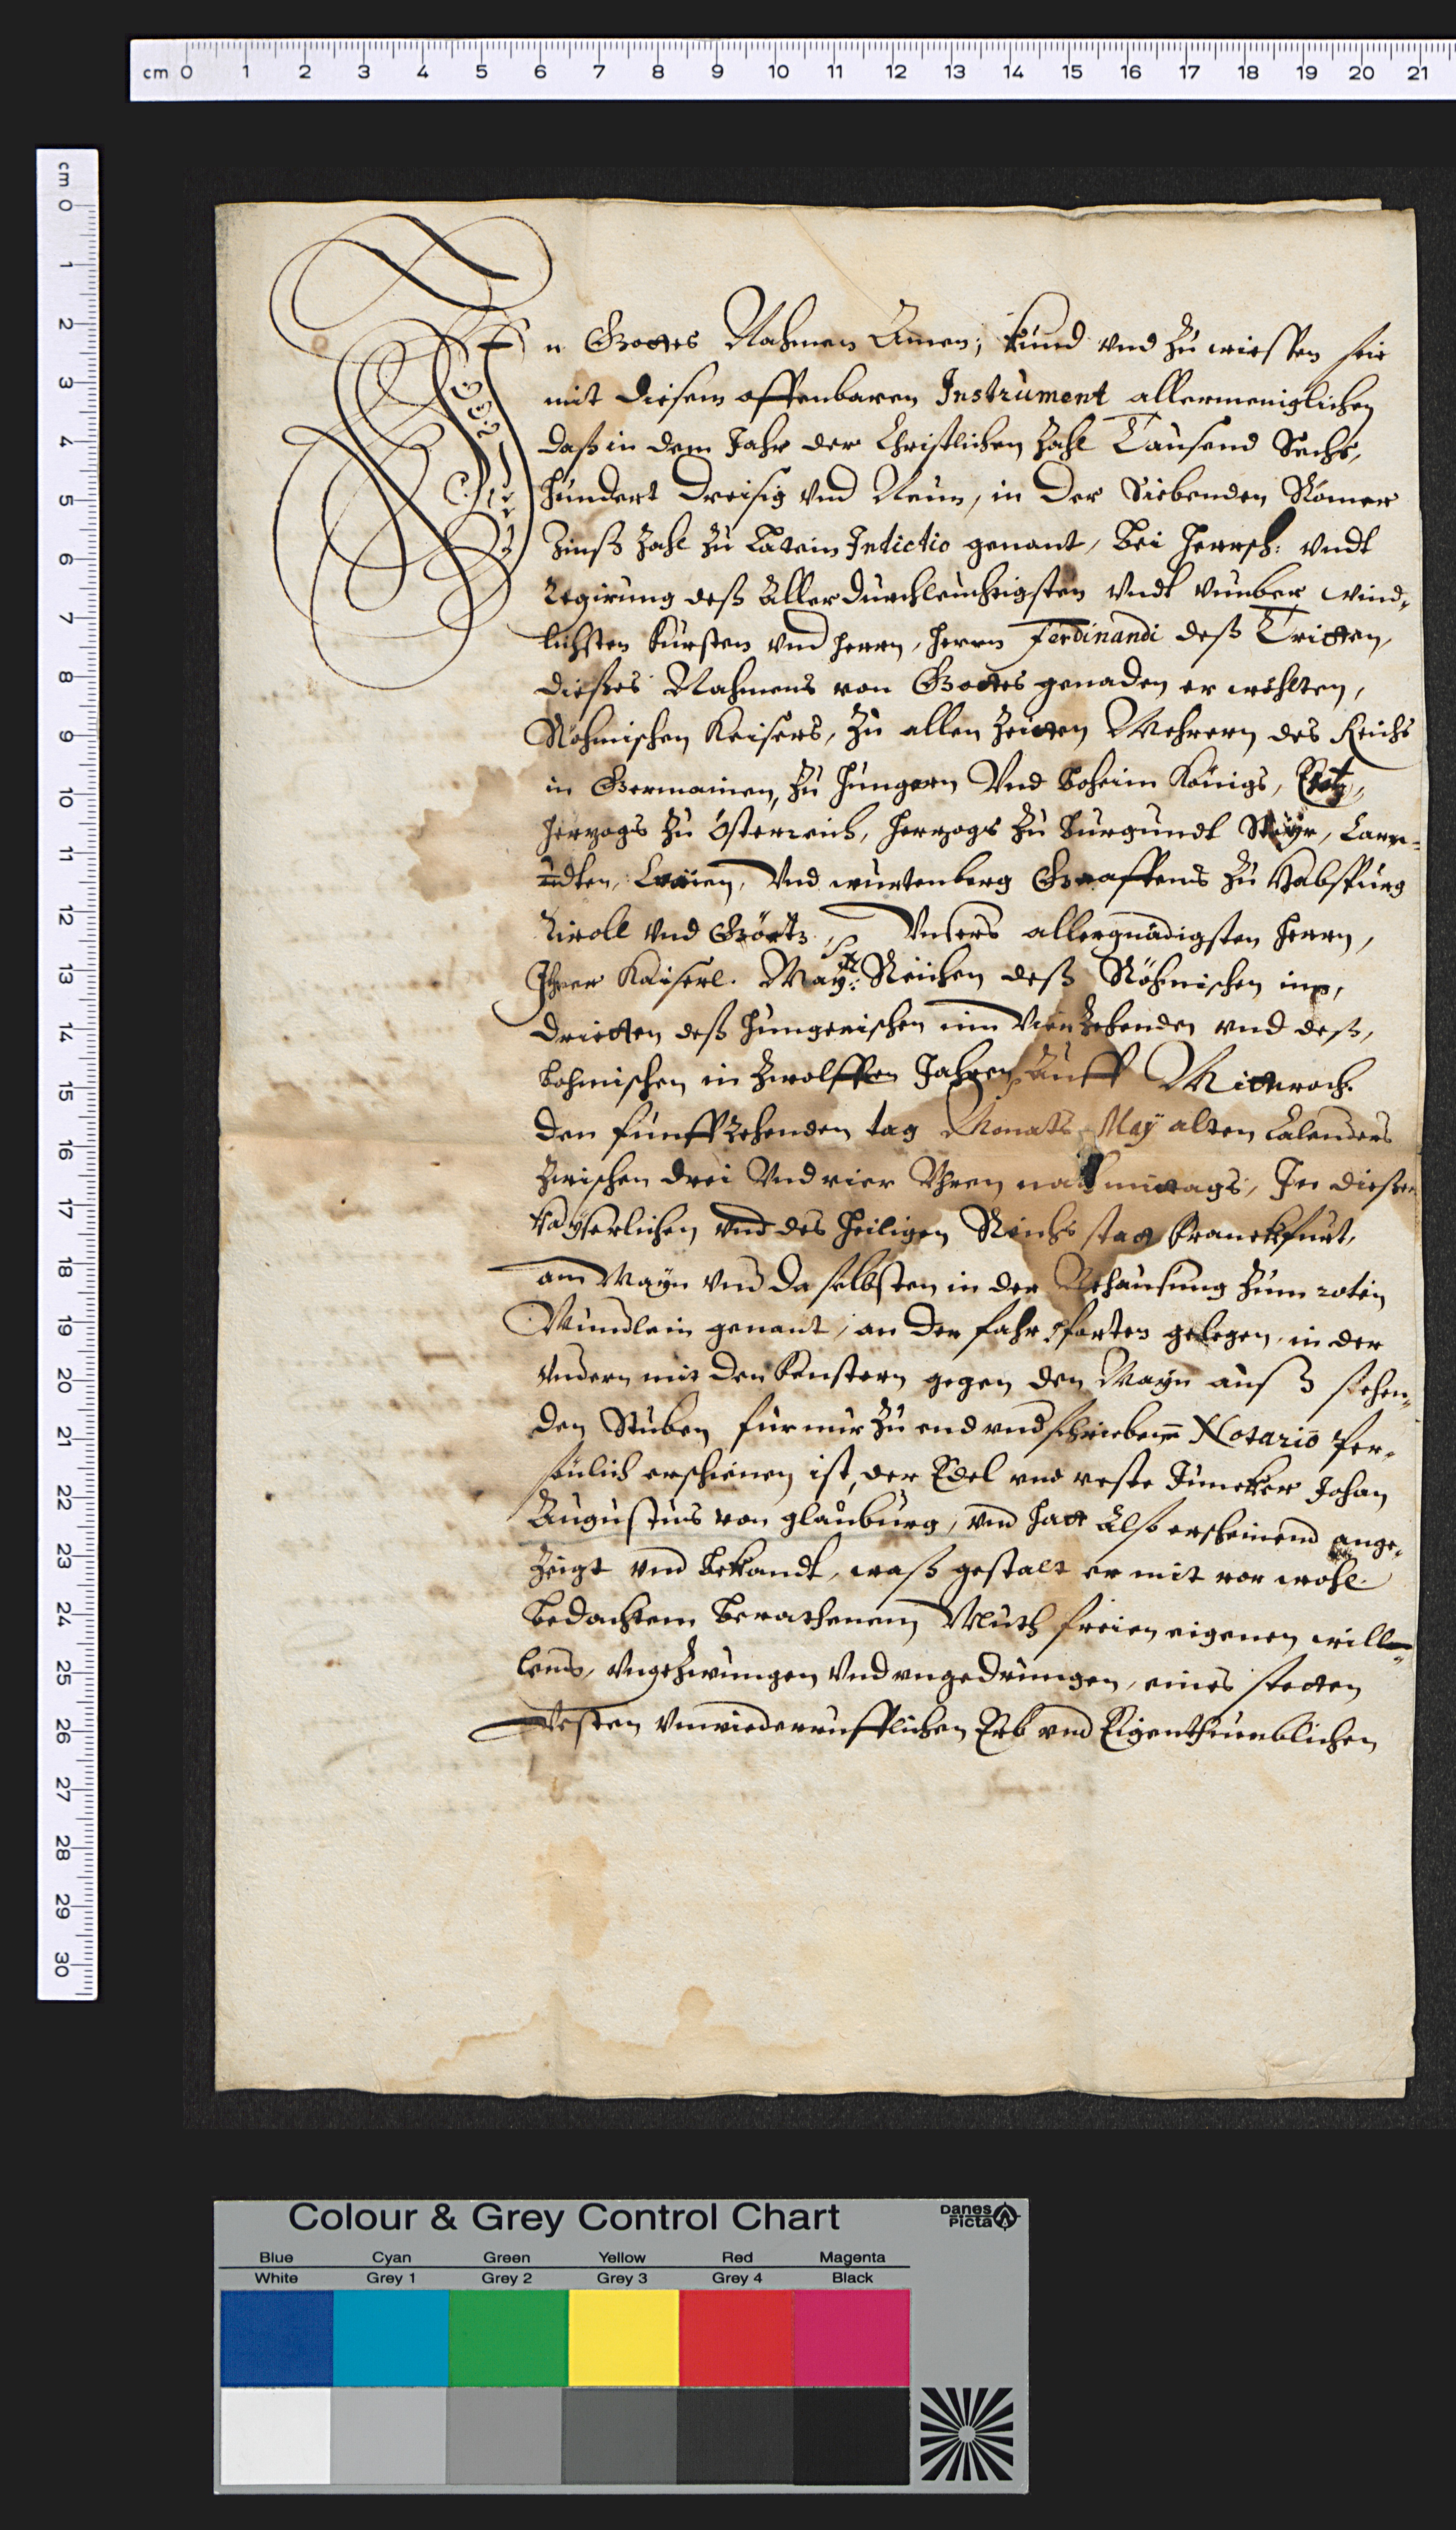 cm 0 1 2 3 4 5 6 7 8 9 10 11 12 13 14 15 16 17 18 19 20 21
cm 0 1 2 3 4 5 6 7 8 9 10 11 12 13 14 15 16 17 18 19 20 21 22 23 24 25 26 27 28 29 30
In Gottes Nahmen Amen; kund vnd zu wiessen seie
mit diesem offenbaren Instrument allermeniglichen
daß in dem Jahr der Christlichen Zahl Tausend Sechs,
hundert dreisig vnd Neun, in der Siebenden Römer
Zinß Zahl zu Latein Indictio genant, bei Herrsch: vndt
Regirung deß Allerdurchleuchtigsten vndt vnüber wind,
lichsten fürsten vnd herrn, herrn Ferdinandi deß Tritten,
dießes Nahmens von Gottes genaden er wehlten,
Röhmischen Keisers, zu allen Zeitten Mehrern des Reichs
in Germainien, zu Hungern Vnd boheim Königs, Ertz,
hertzogs zu Österreich, hertzogs zu Burgundt Steyr, Carn-
dten, Crain, Vnd wurtenberg Graaffens zu Habspurg
Tiroll vnd Görtz, Vnsers allergnädigsten herrn,
Ihrer Kaiserl. May: Reichen deß Röhmischen im,
dritten deß hungerischen im Vierzehenden vnd deß,
bohmischen in zwolfften Jahren, Auff Mittwoch
den funffzehenden tag Monats May alten Calenders
zwischen drei Vnd vier Vhren nachmittags, In dießer
Kayserlichen vnd des heiligen Reichs statt Franckfurt,
am Mayn vnd da selbsten in der Behausung zum roten
Mundlein genant, an der fahr pforten gelegen, in der
Vndern mit den fenstern gegen den Mayn auß stehen,
den Stuben fur mir zu end vndschriebenen Notario Per,
söhnlich erschienen ist, der Edel vnd veste Juncker Johan
Augustus von glauburg, vnd hatt Also erscheinend ange,
zeigt vnd bekandt, waß gestalt er mit vor wohl
bedachtem berathenem Muth freien eigenen will
lens, vngezwungen Vnd vngedrungen, eines stetten
Vesten vnwiederrufflichen Erb vnd Eigenthumblichen
Colour & Grey Control Chart
Danes
Picta
Blue Cyan Green Yellow Red Magenta
White Grey 1 Grey 2 Grey 3 Grey 4 Black